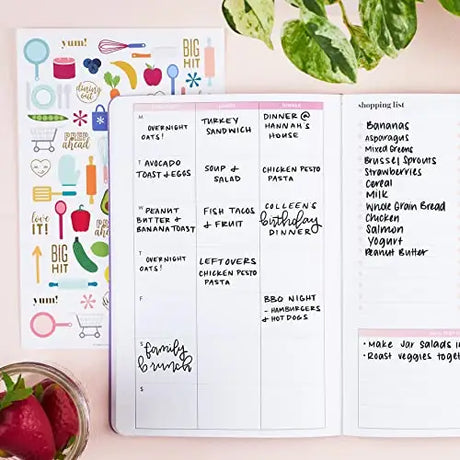 yum!
BIG
HIT
dining
out
PREP
AHEAD
yum!
love
it!
BIG
HIT
yum!
prep
ahead
DINNER
M
OVERNIGHT
OATS!
TURKEY
SANDWICH
DINNER @
HANNAH'S
HOUSE
T
AVOCADO
TOAST & EGGS
SOUP &
SALAD
CHICKEN PESTO
PASTA
W
PEANUT
BUTTER &
BANANA TOAST
FISH TACOS
& FRUIT
COLLEEN'S
birthday
DINNER
T
OVERNIGHT
OATS!
LEFTOVERS
CHICKEN PESTO
PASTA
F
BBQ NIGHT
- HAMBURGERS
& HOT DOGS
S
family
brunch
S
shopping list
Bananas
Asparagus
Mixed Greens
Brussel Sprouts
Strawberries
Cereal
Milk
Whole Grain Bread
Chicken
Salmon
Yogurt
Peanut Butter
• Make Jar Salads
• Roast veggies